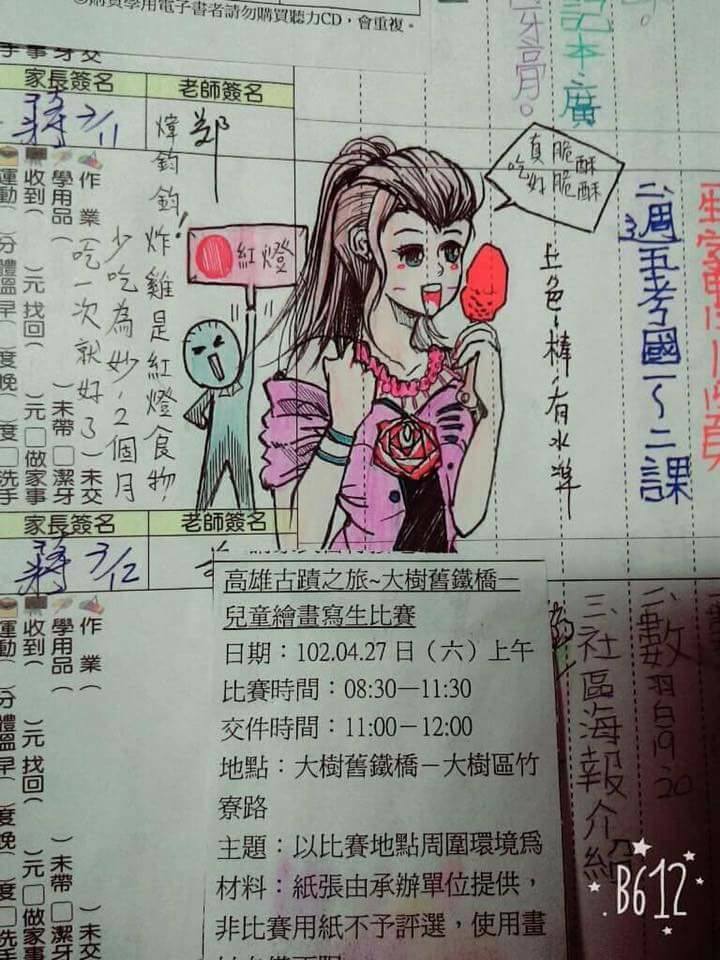 購買學用電子書者請勿購買聽力CD，會重複。
牙膏。
記本、廣
家長簽名
老師簽名
蔣 3/11
鄭
煒鈞鈞！炸雞是紅燈食物，
少吃為妙，2個月
吃一次就好了
紅燈
真脆酥
吃好脆酥
上色~棒，有水準
二、週五考國一~二課
作業（ ）未交
學用品（ ）未帶 □潔牙
收到（ ）元 找回（ ）元 □做家事
家長簽名
老師簽名
蔣 3/12
作業（ ）未交
學用品（ ）未帶 □潔牙
收到（ ）元 找回（ ）元 □做家事
二、數習P19.20
三、社區海報介紹
高雄古蹟之旅~大樹舊鐵橋－
兒童繪畫寫生比賽
日期：102.04.27日（六）上午
比賽時間：08:30－11:30
交件時間：11:00－12:00
地點：大樹舊鐵橋－大樹區竹
寮路
主題：以比賽地點周圍環境為
材料：紙張由承辦單位提供，
非比賽用紙不予評選，使用畫
B612